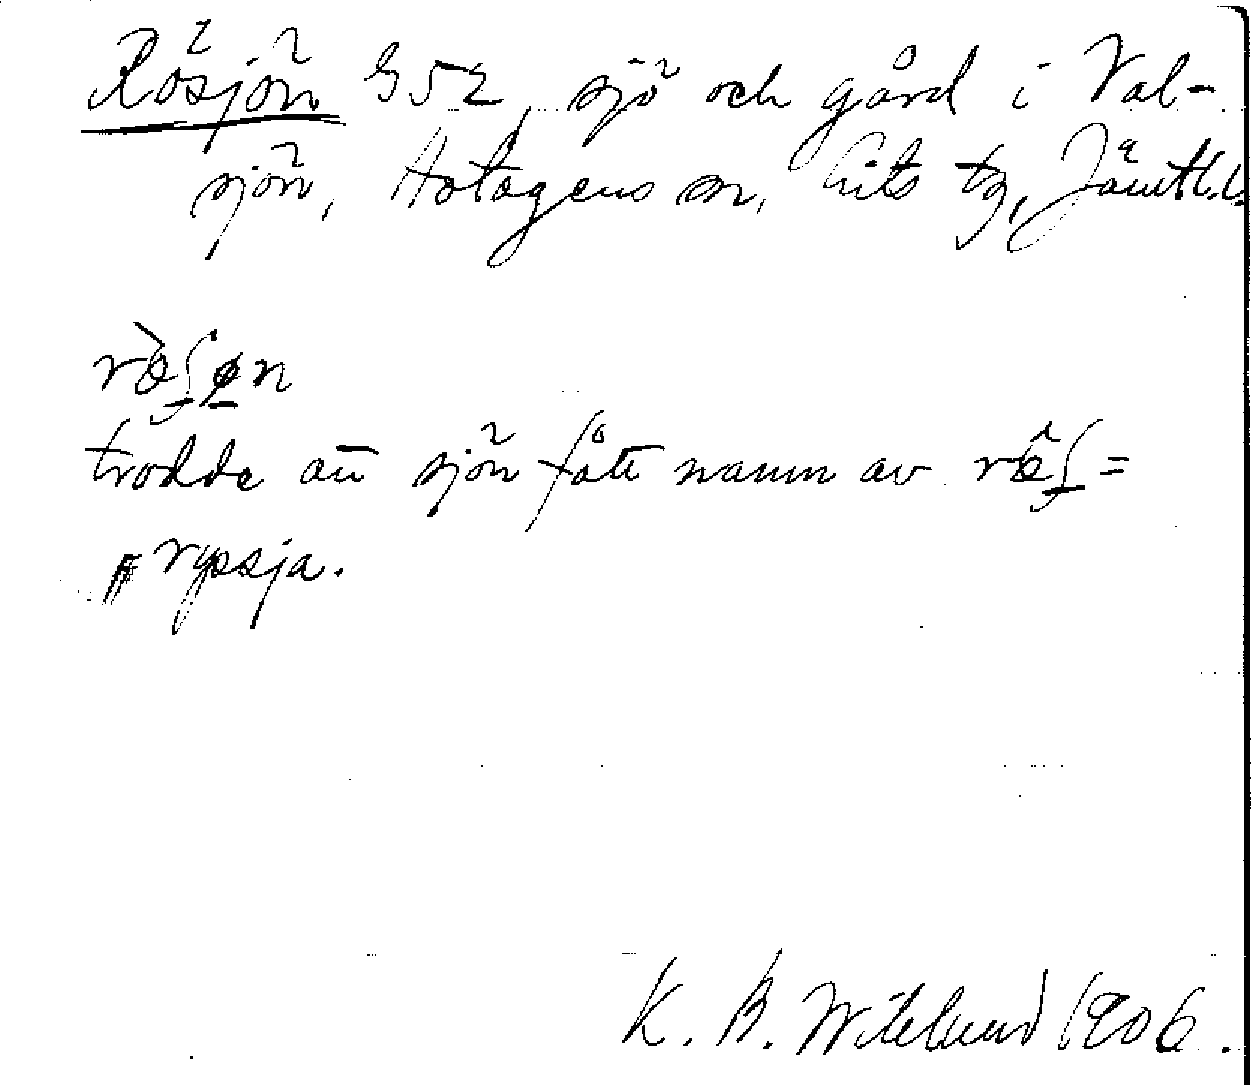 Rösjön 352, sjö och gård i Val-
sjön, Hotagens sn, Lits tg, Jämtl. l.
trodde att sjön fått namn av
ryssja.
K. B. Wiklund 1906.